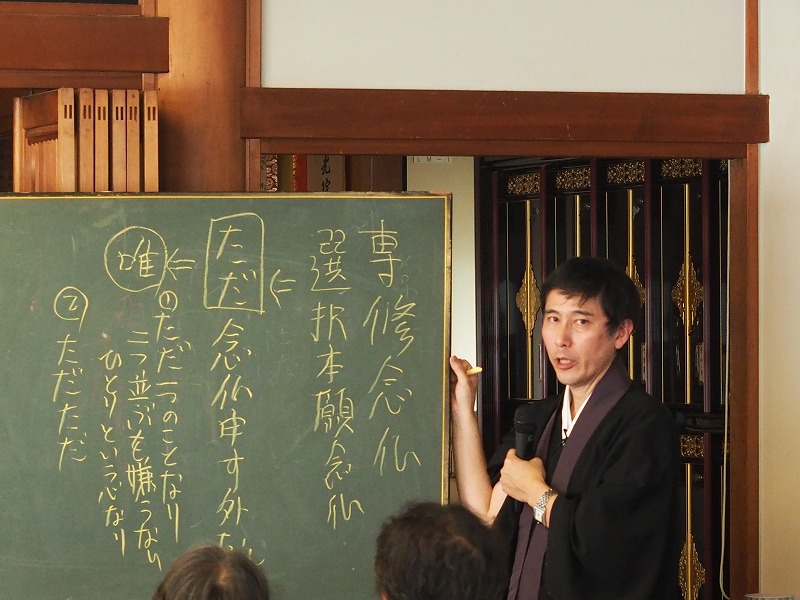 専修念仏
選択本願念仏
⇐
ただ念仏申す外なし
⇐
唯
①ただ一つのことなり
二つ並ぶを嫌うなり
ひとりという心なり
②ただただ